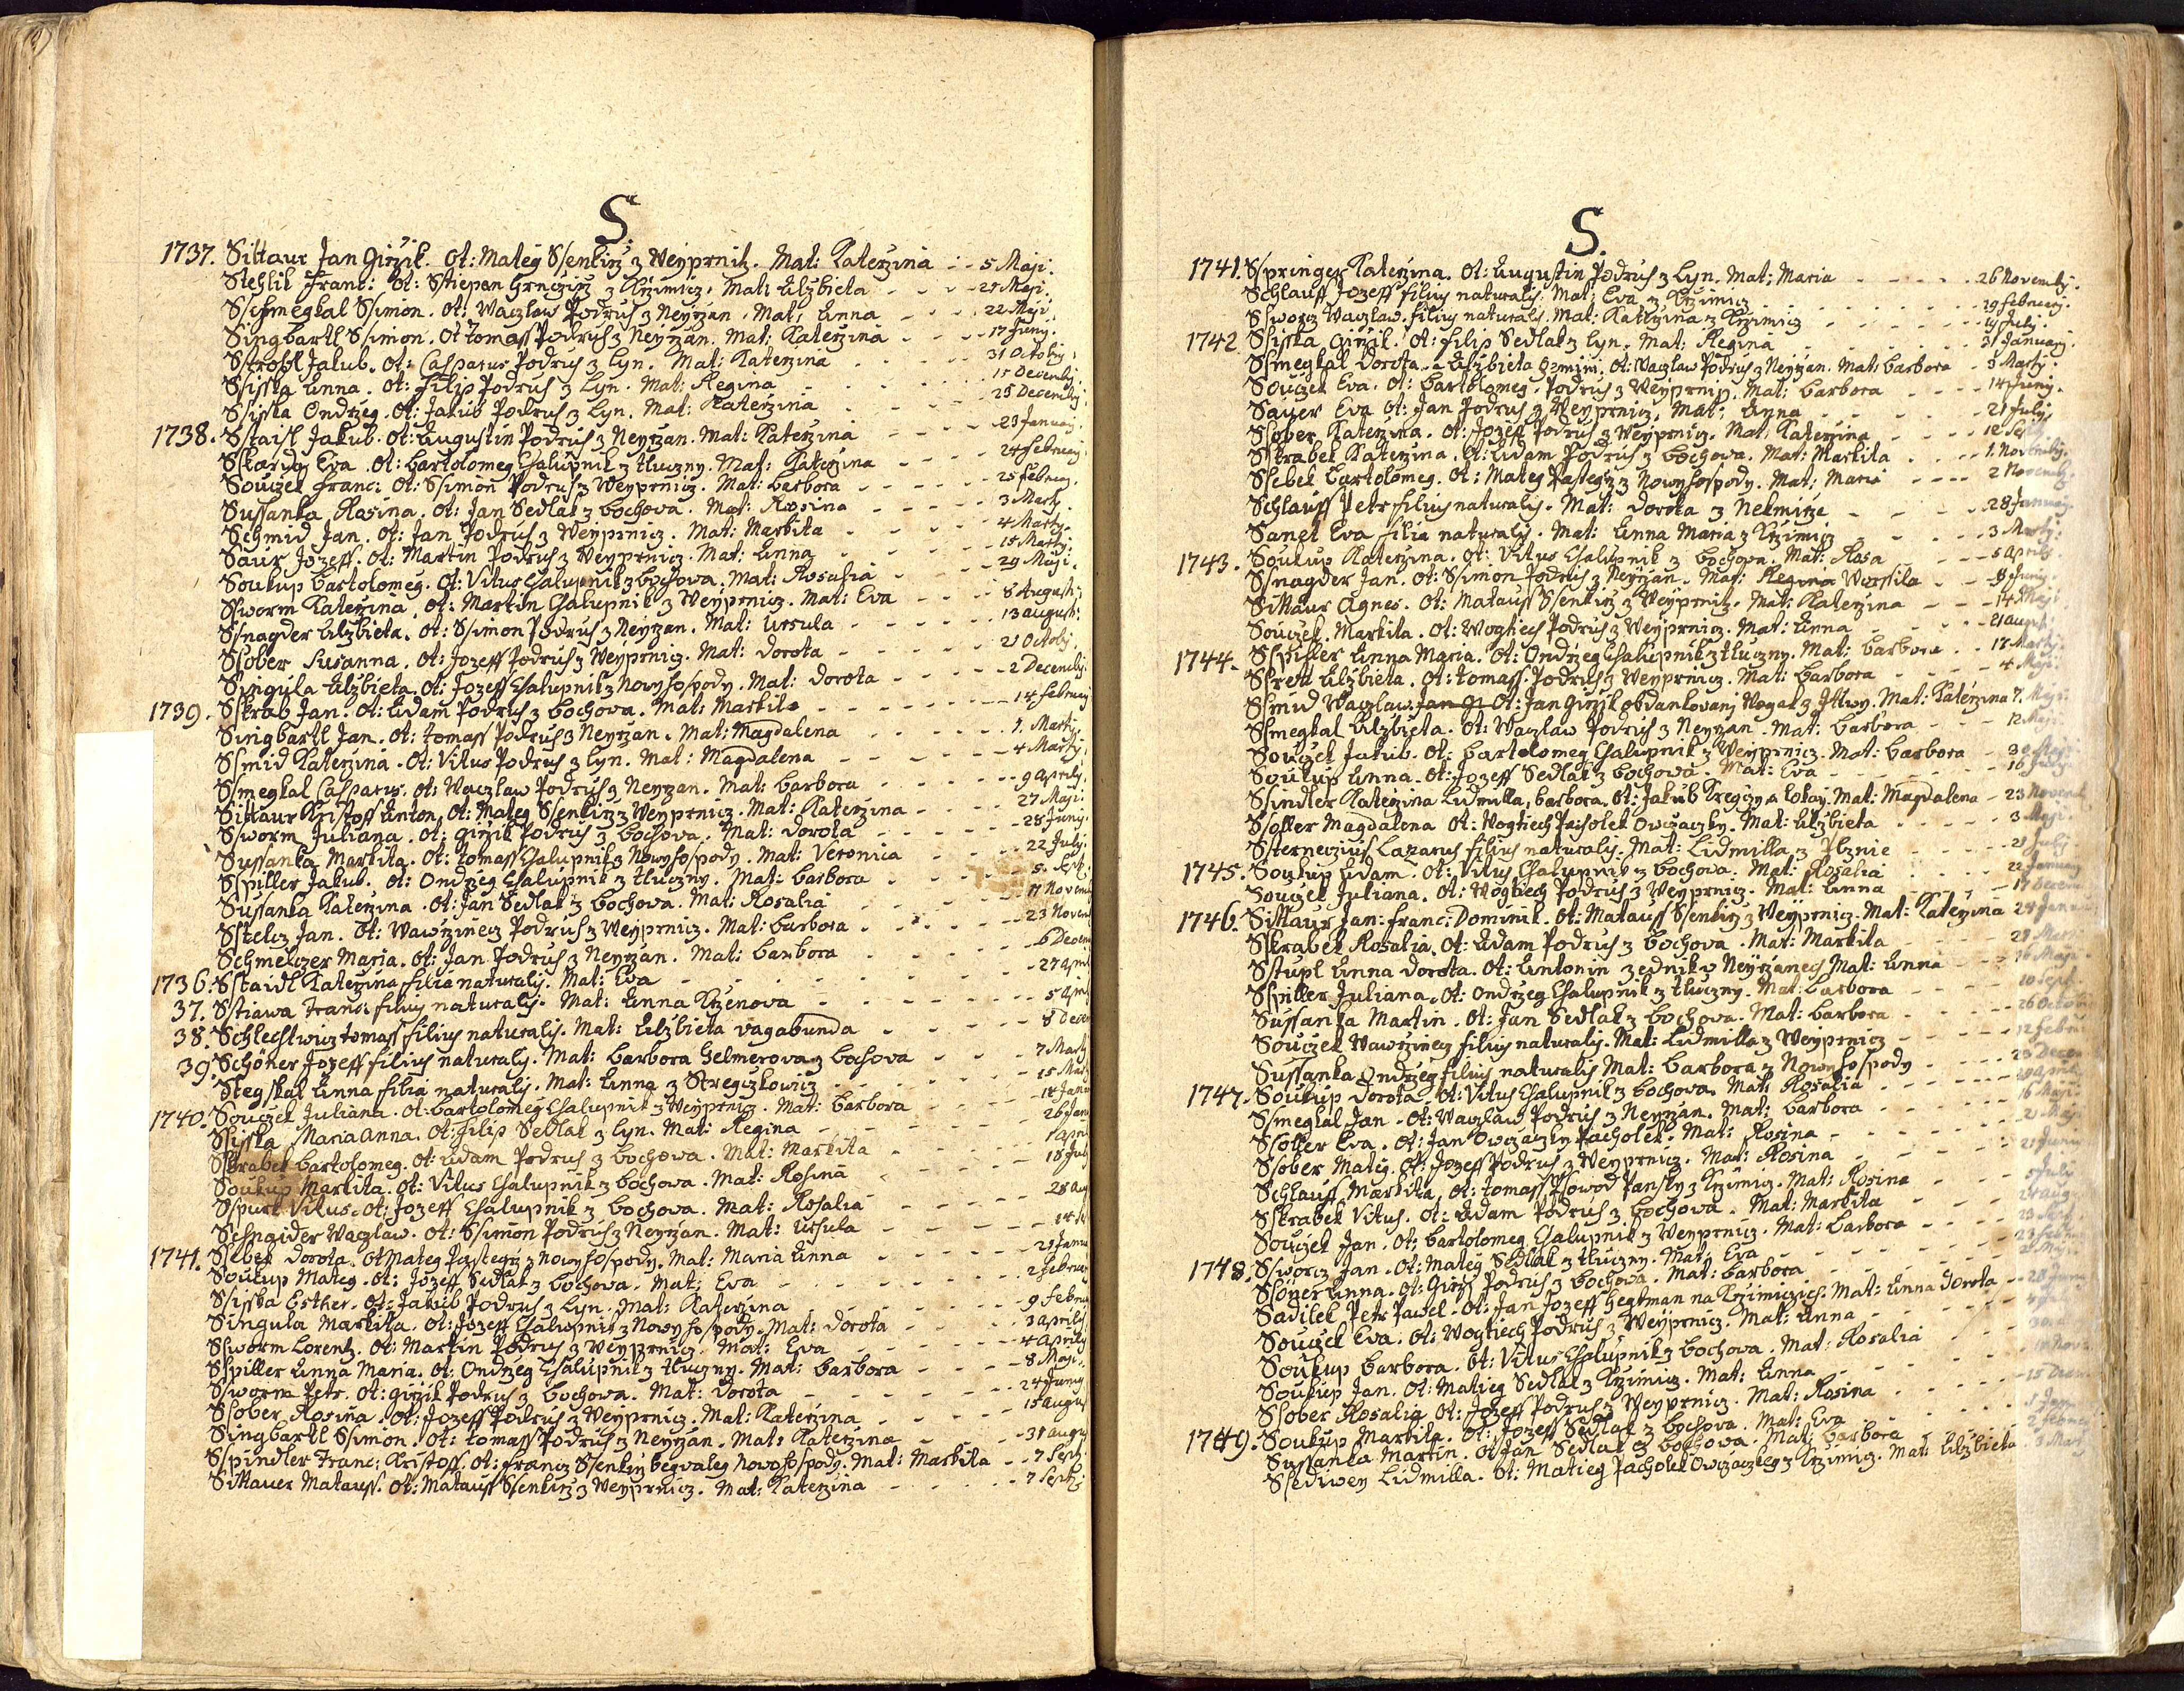 S.
1737. Sittaur Jan Giřzik. Ot: Mateg Ssenkirz z Weyprnitz. Mat: Katerzina - - 5 Maji.
Stehlik Franc: Ot: Sstiepan z Krzimicz. Mat: Elzbieta - - - 21 Maji.
Schmegkal Ssimon. Ot: Waczlaw Podruh z Neyrzan. Mat: Anna - - - 22 Maji.
Singbartl Ssimon. Ot tomass Podruh z Neyrzan. Mat: Katerzina - - - 17 Juny.
Strobl Jakub. Ot: Casparus Podruh z Lyn. Mat: Katerzina - - - 31 Octobry.
Ssisska Anna. Ot: Filip Podruh z Lyn. Mat: Regina - - - 15 Decembry.
Ssisska Ondrzeg. Ot: Jakub Podruh z Lyn. Mat: Katerzina - - - 25 Decembry.
1738. Sstaisl Jakub. Ot: Augustin Podruh z Neyrzan. Mat: Katerzina - - - 23 January.
Sskardy Eva. Ot: Bartolomeg Chalupnik z tluczny. Mat: Katerzina - - - 24 February
Souczek Franc: Ot: Ssimon Podruh z Weyprnicz. Mat: Barbora - - - 25 Februar.
Sussanka Rosina. Ot: Jan Sedlak z Bochova. Mat: Rosina - - - 3 Marty.
Schmid Jan. Ot: Jan Podruh z Weyprnicz. Mat: Markita - - - 4 Marty.
Saur Jozeff. Ot: Martin Podruh z Weyprnicz. Mat: Anna - - - 15 Marty.
Soukup Bartolomeg. Ot: Vitus Chalupnik z Bochowa. Mat: Rosalia - - - 29 Maji.
Ssworm Katerzina. Ot: Martin Chalupnik z Weyprnicz. Mat: Eva - - - 8 Augusti.
Ssnagder Elzbieta. Ot: Ssimon Podruh z Neyrzan. Mat: Ursula - - - 13 august:
Ssober Susanna. Ot: Jozeff Podruh z Weyprnicz. Mat: Dorota - - - 21 Octobr.
Singula Elzbieta. Ot: Jozeff Chalupnik z Nowy hospody. Mat: Dorota - - - 2 Decembr.
1739. Sskrab Jan. Ot: Adam Podruh z Bochova. Mat: Markita - - - 14 February
Singbartl Jan. Ot: tomass Podruh z Neyrzan. Mat: Magdalena - - - 1. Marty.
Ssmid Katerzina. Ot: Vitus Podruh z Lyn. Mat: Magdalena - - - 4 Marty.
Ssmegkal Casparus. Ot: Waczlaw Podruh z Neyrzan. Mat: Barbora - - - 9 Aprilj.
Sittaur Kristoff Anton. Ot: Mateg Ssenkirz z Weyprnicz. Mat: Katerzina - - - 27 Maji.
Ssworm Juliana. Ot: Girzik Podruh z Bochowa. Mat: Dorota - - - 28 Juny.
Sussanka Markita. Ot: tomass Chalupnik z Nowy hospody. Mat: Veronica - - - 22 July.
Sspiller Jakub. Ot: Ondrzeg Chalupnik z tluczny. Mat: Barbora - - - 5. Sept.
Sussanka Katerzina. Ot: Jan Sedlak z Bochova. Mat: Rosalia - - - 17 Novem
Sstelcz Jan. Ot: Wawrzinecz Podruh z Weyprnicz. Mat: Barbora - - - 23 Novem
Schmelczer Maria. Ot: Jan Podruh z Neyrzan. Mat: Barbora - - - 6 Decem
1736. Sstaidl Katerzina filia naturalis. Mat: Eva - - - 27 Apr
37. Sstiawa Franc: filius naturalis. Mat: Anna Krzenova - - - 5 Apr
38. Schlechtwicz tomass filius naturalis. Mat: Elzbieta vagabunda - - - 8 Dece
39. Schöner Jozeff filius naturalis. Mat: Barbora Gelmerova z Bochova - - - 7 Marty
Stegskal Anna filia naturalis. Mat: Anna z Stregczkowicz - - - 15 Mar
1740. Souczek Juliana. Ot: Bartolomeg Chalupnik z Weyprnicz. Mat: Barbora - - - 14 Janu
Ssisska Maria Anna. Ot: Filip Sedlak z Lyn. Mat: Regina - - - 26 Janu
Sskrabek Bartolomeg. Ot: Adam Podruh z Bochowa. Mat: Markita - - - 1 April
Soukup Markita. Ot: Vitus Chalupnik z Bochowa. Mat: Rosina - - - 18 July
Sspurk Vitus. Ot: Jozeff Chalupnik z Bochowa. Mat: Rosalia - - - 28 aug
Schngider Waczlaw. Ot: Ssimon Podruh z Neyrzan. Mat: Ursula - - - 14
1741. Ssebek Dorota. Ot Mateg Pastegrz z Nowy hospody. Mat: Maria Anna - - - 21 Janu
Soukup Mateg. Ot: Jozeff Sedlak z Bochova. Mat: Eva - - - 2 Februar
Ssisska Esther. Ot: Jakub Podruh z Lyn. Mat: Katerzina - - - 9 Febru
Singula Markita. Ot: Jozeff Chalupnik z Nowy hospody. Mat: Dorota - - - 3 Aprilj
Ssworm Lorentz. Ot: Martin Podruh z Weyprnicz. Mat: Eva - - - 4 Aprilj
Sspiller Anna Maria. Ot: Ondrzeg Chalupnik z tluczny. Mat: Barbora - - - 8 Maji.
Ssworm Petr. Ot: Girzik Podruh z Bochowa. Mat: Dorota - - - 24 Juny
Ssober Rosina. Ot: Jozeff Podruh z Weyprnicz. Mat: Katerzina - - - 15 augu
Singbartl Ssimon. Ot: tomass Podruh z Neyrzan. Mat: Katerzina - - - 31 augu
Sspindler Franc: Kristoff. Ot: Francz Ssenkirz begvaleg Nowo hospody. Mat: Markita - - 7 Sept
Sittauer Matauss. Ot: Matauss Ssenkirz z Weyprnicz. Mat: Katerzina - - - 7 Septb
S.
1741. Sspringer Katerzina. Ot: Augustin Podruh z Lyn. Mat: Maria - - - 26 Novembr.
Schlauff Jozeff filius naturalis. Mat: Eva z Krzimicz - - - 19 February.
Ssworcz Waczlaw. filius naturalis. Mat: Katerzina z Krzimicz - - - 19 July.
1742. Ssisska Girzik. Ot: Filip Sedlak z Lyn. Mat: Regina - - - 31 January.
Ssmegkal Dorota a Elzbieta gemini. Ot: Waczlaw Podruh z Neyrzan. Mat: Barbora - 3 Marty.
Souczek Eva. Ot: Bartolomeg. Podruh z Weyprnicz. Mat: Barbora - - - 14 Juny.
Sauer Eva Ot: Jan Podruh z Weyprnicz. Mat: Anna - - - 21 July
Ssober Katerzina. Ot: Jozeff Podruh z Weyprnicz. Mat: Katerzina - - - 12 Se
Sskrabek Katerzina. Ot: Adam Podruh z Bochova. Mat: Markita - - - 1 Novembr.
Ssebek Bartolomeg. Ot: Mateg Pastegrz z Nowy hospody. Mat: Maria - - - 2 Novembr.
Schlauff Petr filius naturalis. Mat: Dorota z Nekmirze - - - 28 January.
Sangl Eva filia naturalis. Mat: Anna Maria z Krzimicz - - - 3 Marty.
1743. Soukup Katerzina. Ot: Vitus Chalupnik z Bochova. Mat: Rosa - - - 5 april
Ssnagder Jan. Ot: Ssimon Podruh z Neyrzan. Mat: Regina Worssila - - - 8 Juny.
Sittaur Agnes. Ot: Matauss Ssenkirz z Weyprnitz. Mat: Katerzina - - - 14 Maji
Souczek. Markita. Ot: Wogtiech Podruh z Weyprnicz. Mat: Anna - - - 21 august.
1744. Sspiller Anna Maria. Ot: Ondrzeg Chalupnik z tluczny. Mat: Barbora - - 17 Marty.
Sskreta Elzbieta. Ot: tomass. Podruh z Weyprnicz. Mat: Barbora - - - 4 Maji.
Ssmid Waczlaw. Ot: Jan Girzik obdankovany Wogak z Mat: Katerzina 7. Maji
Ssmegkal Elzbieta. Ot: Waczlaw Podruh z Neyrzan. Mat: Barbora - - - 12 Maji
Souczek Jakub. Ot: Bartolomeg Chalupnik z Weyprnicz. Mat: Barbora - - 30
Soukup Anna. Ot: Jozeff Sedlak z Bochova. Mat: Eva - - - 16 July
Ssindler Katerzina Lidmilla, Barbora. Ot: Jakub Kregczy a Lokay. Mat: Magdalena - 23 Novemb
Ssoller Magdalena Ot: Wogtiech Pacholek Owczaczky. Mat: Elzbieta - - - 3 Maji
Ssterneczius Lazarus filius naturalis. Mat: Lidmilla z Plznie - - - 21 July
1745. Soukup Adam. Ot: Vitus Chalupnik z Bochowa. Mat: Rosalia - - - 22 January
Souczek Juliana. Ot: Wogtiech Podruh z Weyprnicz. Mat: Anna - - - 17 Decem
1746. Sittaur Jan: Franc: Dominik. Ot: Matauss Ssenkirz z Weyprnicz. Mat: Katerzina 24 Janu
Sskrabek Rosalia. Ot: Adam Podruh z Bochova. Mat: Markita - - - 27
Sstupl Anna Dorota. Ot: Antonin zednik v Neyrzanech Mat: Anna - - - 16 Maji
Sspiller Juliana. Ot: Ondrzeg Chalupnik z tluczny. Mat: Barbora - - - 10 Sept.
Sussanka Martin. Ot: Jan Sedlak z Bochova. Mat: Barbora - - - 26 Octob
Souczek Wawrzinecz filius naturalis. Mat: Lidmilla z Weyprnicz - - - 12 Febru
Sussanka Ondrzeg filius naturalis Mat: Barbora z Nowy hospody - - - 23 Decem
1747. Soukup Dorota. Ot: Vitus Chalupnik z Bochova. Mat: Rosalia - - - April
Ssmegkal Jan. Ot: Waczlaw Podruh z Neyrzan. Mat: Barbora - - - 16 Maji
Ssoller Eva. Ot: Jan Owczaczky Pacholek. Mat: Rosina - - - 21 Maji
Ssober Mateg. Ot: Jozeff Podruh z Weyprnicz. Mat: Rosina - - - 21 Juny
Schlauff Markita, Ot: tomass Plowod Pansky z Krzimicz. Mat: Rosina - - - 5 July
Sskrabek Vitus. Ot: Adam Podruh z Bochova. Mat: Markita - - - 24 aug
Souczek Jan. Ot: Bartolomeg Chalupnik z Weyprnicz. Mat: Barbora - - - 23 Sept
1748. Ssworcz Jan. Ot: Mateg Sedlak z tluczny. Mat: Eva - - - 23 Febru
Ssöner Anna. Ot: Girzi Podruh z Bochova. Mat: Barbora - - - Maji
Sadilek Petr Pawel. Ot: Jan Jozeff Hegtman na Krzimiczich. Mat: Anna Dorota - - 28 Juny
Souczek Eva. Ot: Wogtiech Podruh z Weyprnicz. Mat: Anna - - -
Soukup Barbora. Ot: Vitus Chalupnik z Bochowa. Mat: Rosalia - - -
Soukup Jan. Ot: Matieg Sedlak z Krzimicz. Mat: Anna - - - Nov
Ssober Rosalia Ot: Jozeff Podruh z Weyprnicz. Mat: Rosina - - - 15 Decem
1749. Soukup Markita. Ot: Jozeff Sedlak z Bochova. Mat: Eva - - - 1 Janu
Sussanka Martin. Ot Jan Sedlak z Bochowa. Mat: Barbora - - - 2 Februa
Ssediwey Lidmilla. Ot: Matieg Pacholek Owczaczkey z Krzimicz. Mat: Elzbieta 3 Mar